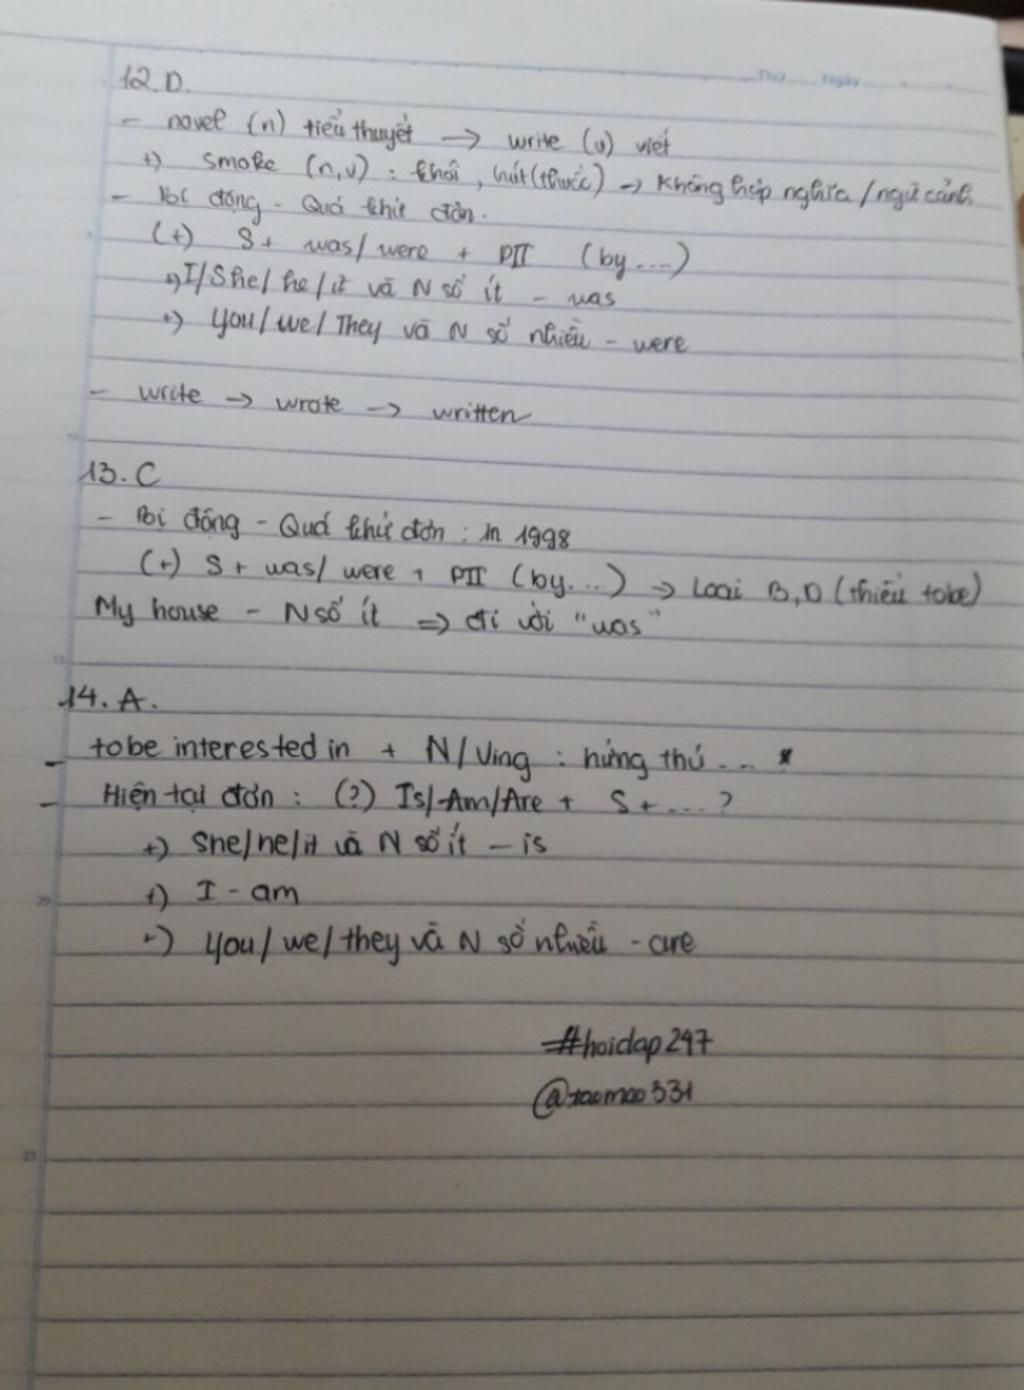 Thứ..... Ngày
12.D.
- novel (n) tiểu thuyết → write (v) viết
+) smoke (n,v) : khói, hút (thuốc) → Không hợp nghĩa / ngữ cảnh
- Bị động - Quá khứ đơn.
(+) S + was/ were + PII (by ....)
+) I/She/ he / it và N số ít - was
+) You/ we/ They và N số nhiều - were
- write → wrote → written
13. C
- Bị động - Quá khứ đơn : In 1998
(+) S + was/ were + PII (by....) → Loại B, D (thiếu tobe)
My house - N số ít ⇒ đi với "was"
14. A.
- tobe interested in + N/Ving : hứng thú ...
- Hiện tại đơn : (?) Is/Am/Are + S + .... ?
+) She/he/it và N số ít - is
+) I - am
+) You/ we/ they và N số nhiều - are
#hoidap247
@taomao331